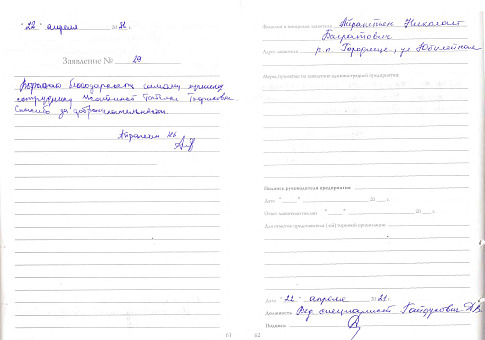 "22" апреля 2021 г.
Заявление № 29
благодарность самому лучшему
сотруднику Татьяне
Спасибо за доброжелательность.
61
Фамилия и инициалы заявителя Николай
Багратович
Адрес заявителя р.п. Городище, ул. Юбилейная
Меры, принятые по заявлению администрацией предприятия:
Подпись руководителя предприятия
Дата "____" 20 г.
Ответ заявителю послан "____" 20 г.
Для отметки представителя (-ей) торговой организации
Дата "22" апреля 2021 г.
Должность Вед. специалист Гайдукович
Подпись
62